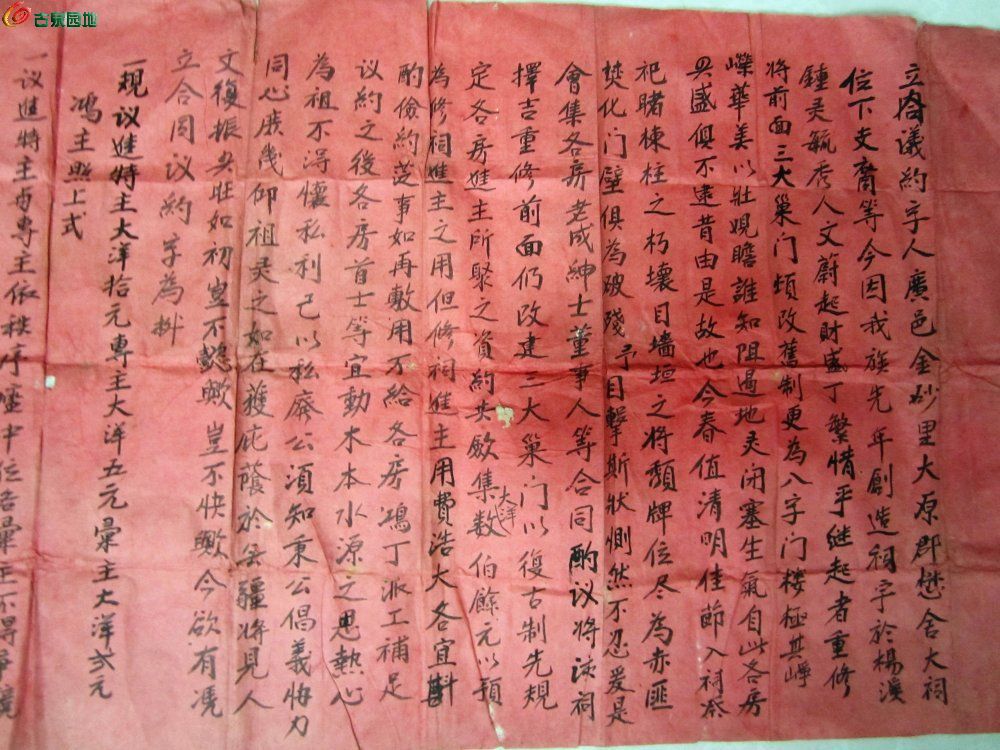 古泉园地
立合議約字人廣邑金砂里大原郡懋舍大祠
位下支裔等今因我族先年創造祠宇於楊漢
鍾灵毓秀人文蔚起財盛丁繁惜乎继起者重修
将前面三大巢门頓改舊制更為八字门楼極其崢
嶸華美以壯覌瞻誰知阻遏地灵闭塞生氣自此各房
興盛俱不逮昔由是故也今春值清明佳節入祠祭
祀睹棟柱之朽壞目墙垣之将頹牌位尽為赤匪
焚化门壁俱為破殘予目擊斯狀惻然不忍爰是
會集各房老成紳士董事人等合同酌议将该祠
擇吉重修前面仍改建三大巢门以復古制先規
定各房進主所聚之資約共歛集大洋数伯餘元以預
為修祠進主之用但修祠進主用費浩大各宜斟
酌儉約莅事如再敷用不给各房鴻丁派工補足
议約之後各房首士等宜動木本水源之思熱心
為祖不得懷私利己以私廢公須知秉公倡義悔力
同心庶幾仰祖灵之如在獲庇蔭於無疆将見人
文復振興旺如初豈不懿歟豈不快歟今欲有憑
立合同议約字為拠
一規议進特主大洋拾元専主大洋五元彙主大洋弍元
鴻主照上式
一议進特主与専主依秩序壟中位吿彙主不得爭競